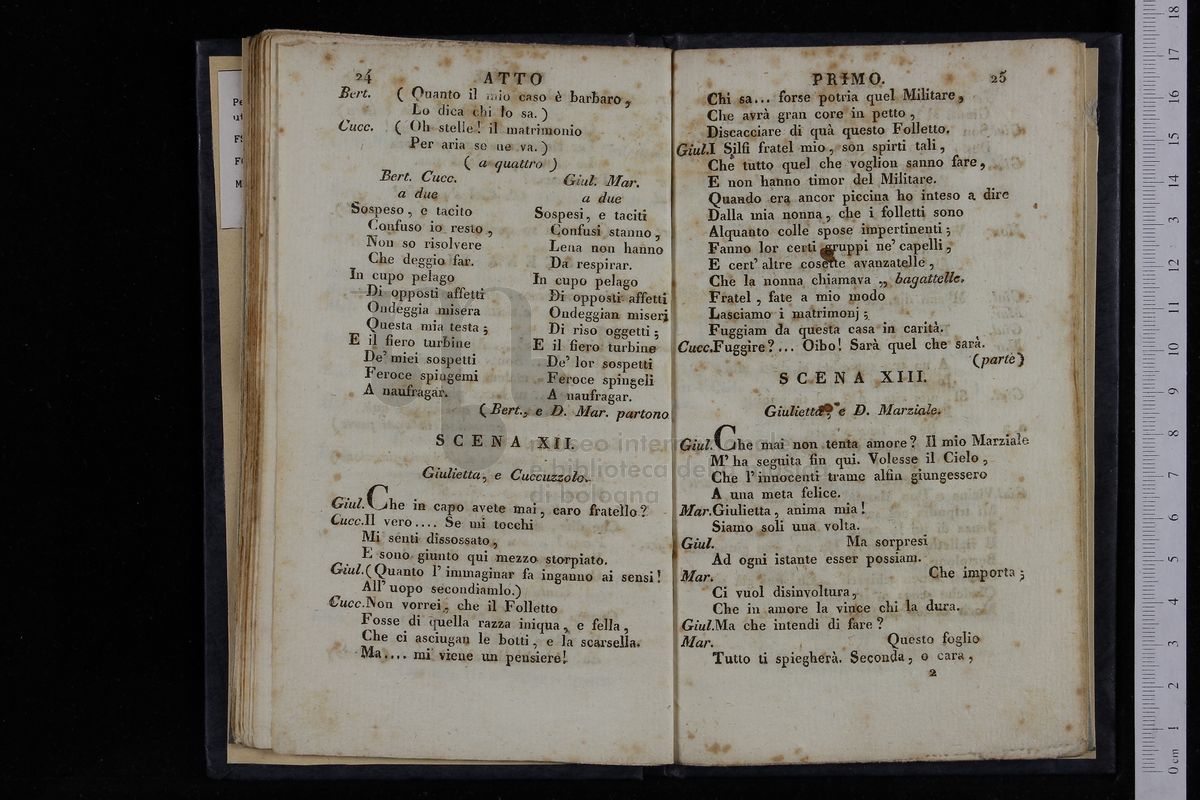 24 ATTO
Bert. ( Quanto il mio caso è barbaro,
Lo dica chi lo sa. )
Cucc. ( Oh stelle! il matrimonio
Per aria se ne va. )
( a quattro )
Bert. Cucc.
a due
Sospeso, e tacito
Confuso io resto,
Non so risolvere
Che deggio far.
In cupo pelago
Di opposti affetti
Ondeggia misera
Questa mia testa;
E il fiero turbine
De' miei sospetti
Feroce spingemi
A naufragar.
Giul. Mar.
a due
Sospesi, e taciti
Confusi stanno,
Lena non hanno
Da respirar.
In cupo pelago
Di opposti affetti
Ondeggian miseri
Di riso oggetti;
E il fiero turbine
De' lor sospetti
Feroce spingeli
A naufragar.
( Bert., e D. Mar. partono
SCENA XII.
Giulietta, e Cuccuzzolo.
Giul. Che in capo avete mai, caro fratello?
Cucc. Il vero.... Se mi tocchi
Mi senti dissossato,
E sono giunto qui mezzo storpiato.
Giul. (Quanto l' immaginar fa inganno ai sensi!
All' uopo secondiamlo.)
Cucc. Non vorrei, che il Folletto
Fosse di quella razza iniqua, e fella,
Che ci asciugan le botti, e la scarsella.
Ma.... mi viene un pensiere!
PRIMO. 25
Chi sa... forse potria quel Militare,
Che avrà gran core in petto,
Discacciare di quà questo Folletto.
Giul. I Silfi fratel mio, son spirti tali,
Che tutto quel che voglion sanno fare,
E non hanno timor del Militare.
Quando era ancor piccina ho inteso a dire
Dalla mia nonna, che i folletti sono
Alquanto colle spose impertinenti;
Fanno lor certi gruppi ne' capelli,
E cert' altre cosette avanzatelle,
Che la nonna chiamava „ bagattelle.
Fratel, fate a mio modo
Lasciamo i matrimonj;
Fuggiam da questa casa in carità.
Cucc. Fuggire?... Oibo! Sarà quel che sarà.
(parte)
SCENA XIII.
Giulietta, e D. Marziale.
Giul. Che mai non tenta amore? Il mio Marziale
M' ha seguita fin qui. Volesse il Cielo,
Che l' innocenti trame alfin giungessero
A una meta felice.
Mar. Giulietta, anima mia!
Siamo soli una volta.
Giul. Ma sorpresi
Ad ogni istante esser possiam.
Mar. Che importa;
Ci vuol disinvoltura,
Che in amore la vince chi la dura.
Giul. Ma che intendi di fare?
Mar. Questo foglio
Tutto ti spiegherà. Seconda, o cara,
2
di bologna
0 cm 1 2 3 4 5 6 7 8 9 10 11 12 13 14 15 16 17 18